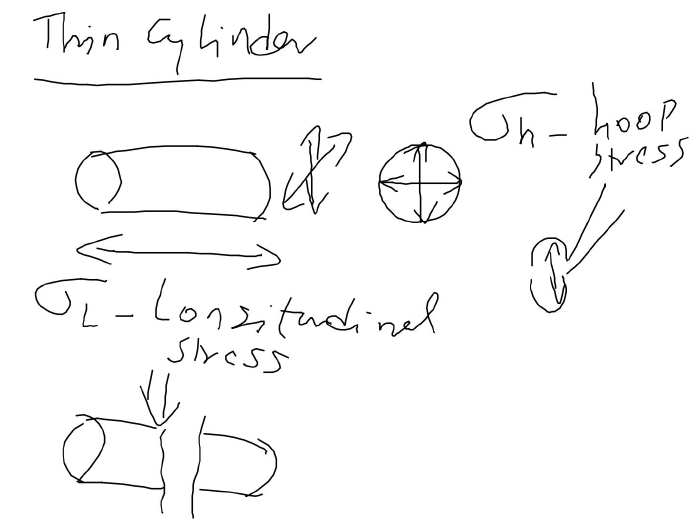 Thin Cylinder
σh - hoop
stress
σL - Longitudinal
stress